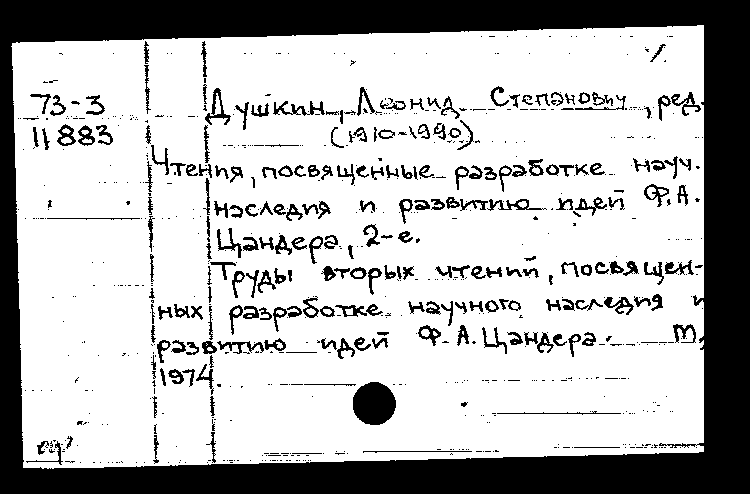 73-3
11883
Душкин, Леонид Степанович, ред.
(1910-1990)
Чтения, посвященные разработке науч.
наследия и развитию идей Ф.А.
Цандера, 2-е.
Труды вторых чтений, посвящен-
ных разработке научного наследия и
развитию идей Ф.А.Цандера. М,
1974.